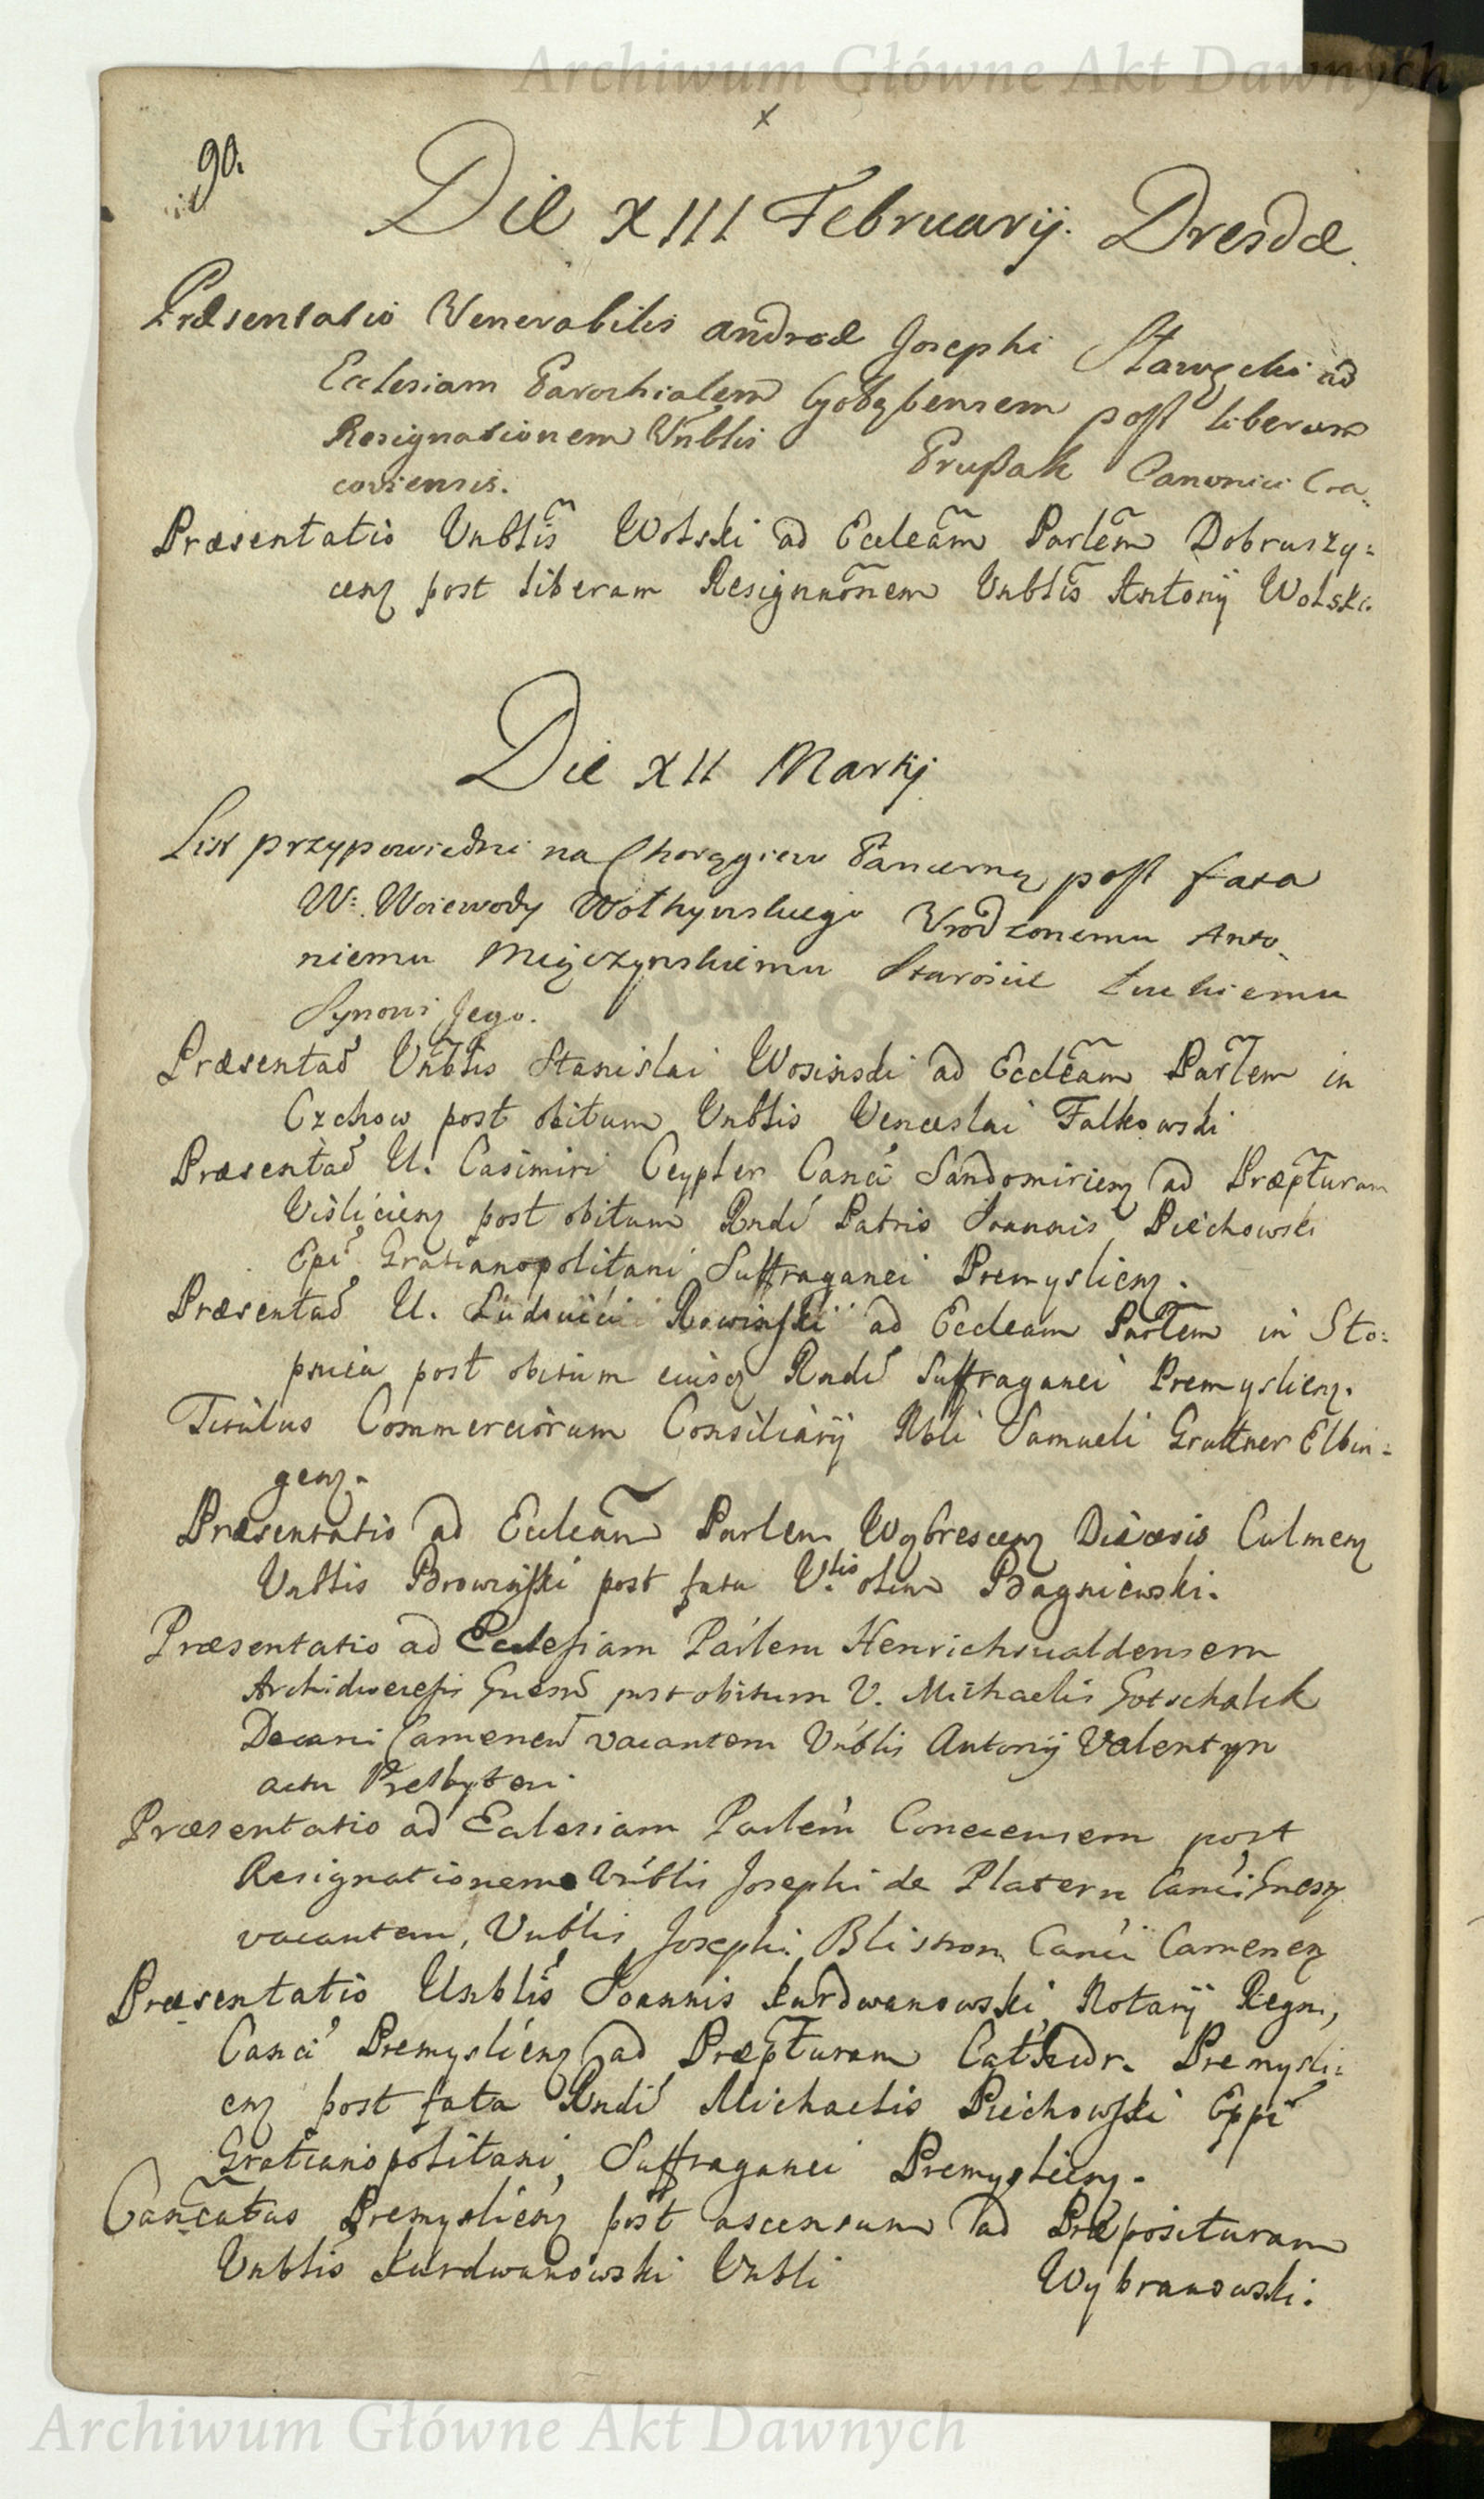 Archiwum Główne Akt Dawnych
90.
Die XIII Februarij. Dresdæ.
Præsentatio Venerabilis Andreæ Josephi ad
Ecclesiam Parochialem post liberam
Resignationem Vnblis Prußak Canonici Cra-
coviensis.
Præsentatio Vnblis Wolski ad Eccleam Parlem Dobruszy-
cen post liberam Resignaonem Vnblis Antonij Wolski.
Die XII Martij
List przypowiedni na Chorągiew Pancerną post fata
W: Woiewody Wołhynskiego Vrodzonemu Anto
niemu Miączynskiemu Staroscie Łuckiemu
Synowi Jego.
Præsentao Vnblis Stanislai Wosinski ad Eccleam Parlem in
Czchow post obitum Vnblis Venceslai Falkowski
Præsentao U. Casimiri Ceypler Canci Sandomirien ad Præpturam
Vislicien post obitum Rndi Patris Joannis Piechowski
Epi Gratianopolitani Suffraganei Premyslien.
Præsentao U. Ludovici Rowinski ad Eccleam Parlem in Sto-
pnica post obitum eiusq Rndi Suffraganei Premyslien.
Titulus Commerciorum Consiliarij Nbli Samueli Grattner Elbin-
gen.
Præsentatio ad Eccleam Parlem Wybrescen Diœcesis Culmen
Vnblis Browinski post fata V.lis olim Bagniewski.
Præsentatio ad Ecclesiam Parlem Henrichswaldensem
Archidiœcesis Gnesn post obitum V. Michaelis Gotschalck
Decani Camenen vacantem Vnblis Antonij Valentyn
actu Presbyteri.
Præsentatio ad Eclesiam Parlem Conecensem post
Resignationem Vnblis Josephi de Platern Canci Gnesn
vacantem, Vnblis Josephi Blistron Canci Camenen
Præsentatio Vnblis Joannis Kurdwanowski, Notarij Regni,
Canci Premyslien ad Præpturam Cathedr. Premysli-
en post fata Rndi Michaelis Piechowski Eppi
Gratianopolitani, Suffraganei Premyslien.
Cancatus Premyslien post ascensum ad Præposituram
Vnblis Kurdwanowski Vnbli Wybranowski.
Archiwum Główne Akt Dawnych